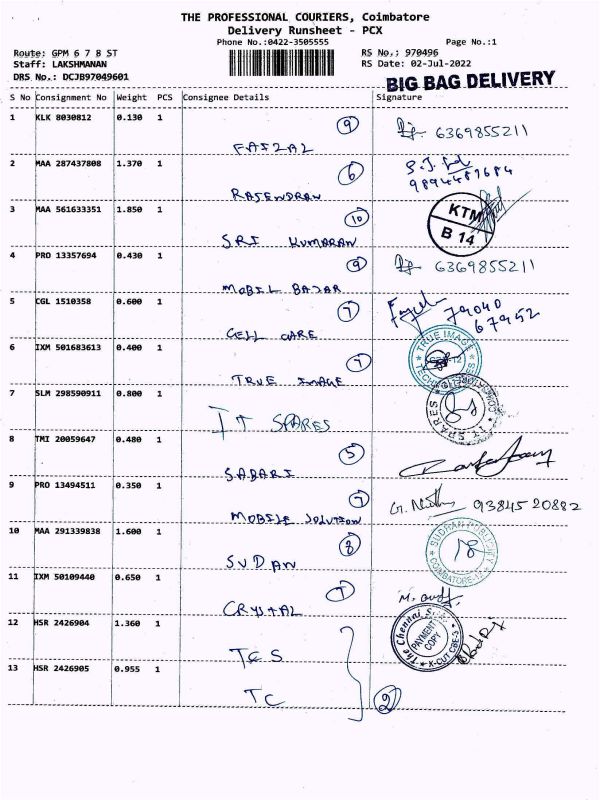 THE PROFESSIONAL COURIERS, Coimbatore
Delivery Runsheet - PCX
Phone No.:0422-3505555
Page No.:1
Route: GPM 6 7 8 ST
RS No.; 970496
Staff: LAKSHMANAN
RS Date: 02-Jul-2022
DRS No.: DCJB97049601
BIG BAG DELIVERY
S No Consignment No Weight PCS Consignee Details Signature
1 KLK 8030812 0.130 1
9
FAIZAL
6369855211
2 MAA 287437808 1.370 1
6
RAJENDRAN
9894487684
3 MAA 561633351 1.850 1
10
SRI KUMARAN
KTM
B 14
4 PRO 13357694 0.430 1
9
MOBIL BAJAR
6369855211
5 CGL 1510358 0.600 1
7
CELL CARE
79040
67952
6 IXM 501683613 0.400 1
7
TRUE IMAGE
TRUE IMAGE
7 SLM 298590911 0.800 1
IT SPARES
IT SPARES
8 TMI 20059647 0.480 1
5
SABARI
9 PRO 13494511 0.350 1
7
MOBILE SOLUTION
9384520882
10 MAA 291339838 1.600 1
8
SUDAN
SUDHAN PUBLICITY
COIMBATORE-12
18
11 IXM 50109440 0.650 1
1
CRYSTAL
12 HSR 2426904 1.360 1
TCS
The Chennai
PAYMENT
COPY
X-CUT CBE-
13 HSR 2426905 0.955 1
TC
2